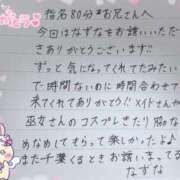 指名80分*お兄さんへ
今回はなずなをお誘いいただ
きありがとうございます!!
ずっと気になってくれてたみたい
で時間ないのに時間合わせて
来てくれてありがとう メイドさんや
巫女さんのコスプレしたり胸な
めなめしてもらって楽しかったよ♪
また千葉くるときお誘いまってる
なずな